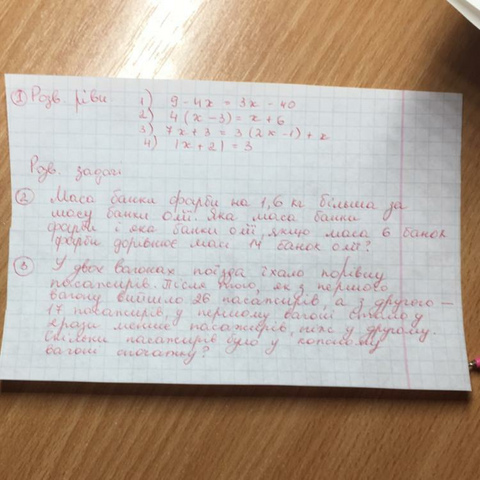 ① Розв. рівн.
1) 9 - 4x = 3x - 40
2) 4(x - 3) = x + 6
3) 7x + 3 = 3(2x - 1) + x
4) |x + 2| = 3
Розв. задачі
② Маса банки фарби на 1,6 кг більша за
масу банки олії. Яка маса банки
фарби і яка банки олії, якщо маса 6 банок
фарби дорівнює масі 14 банок олії?
③ У двох вагонах поїзда їхало порівну
пасажирів. Після того, як з першого
вагону вийшло 26 пасажирів, а з другого —
17 пасажирів, у першому вагоні стало у
рази менше пасажирів, ніж у другому.
Скільки пасажирів було у кожному
вагоні спочатку?